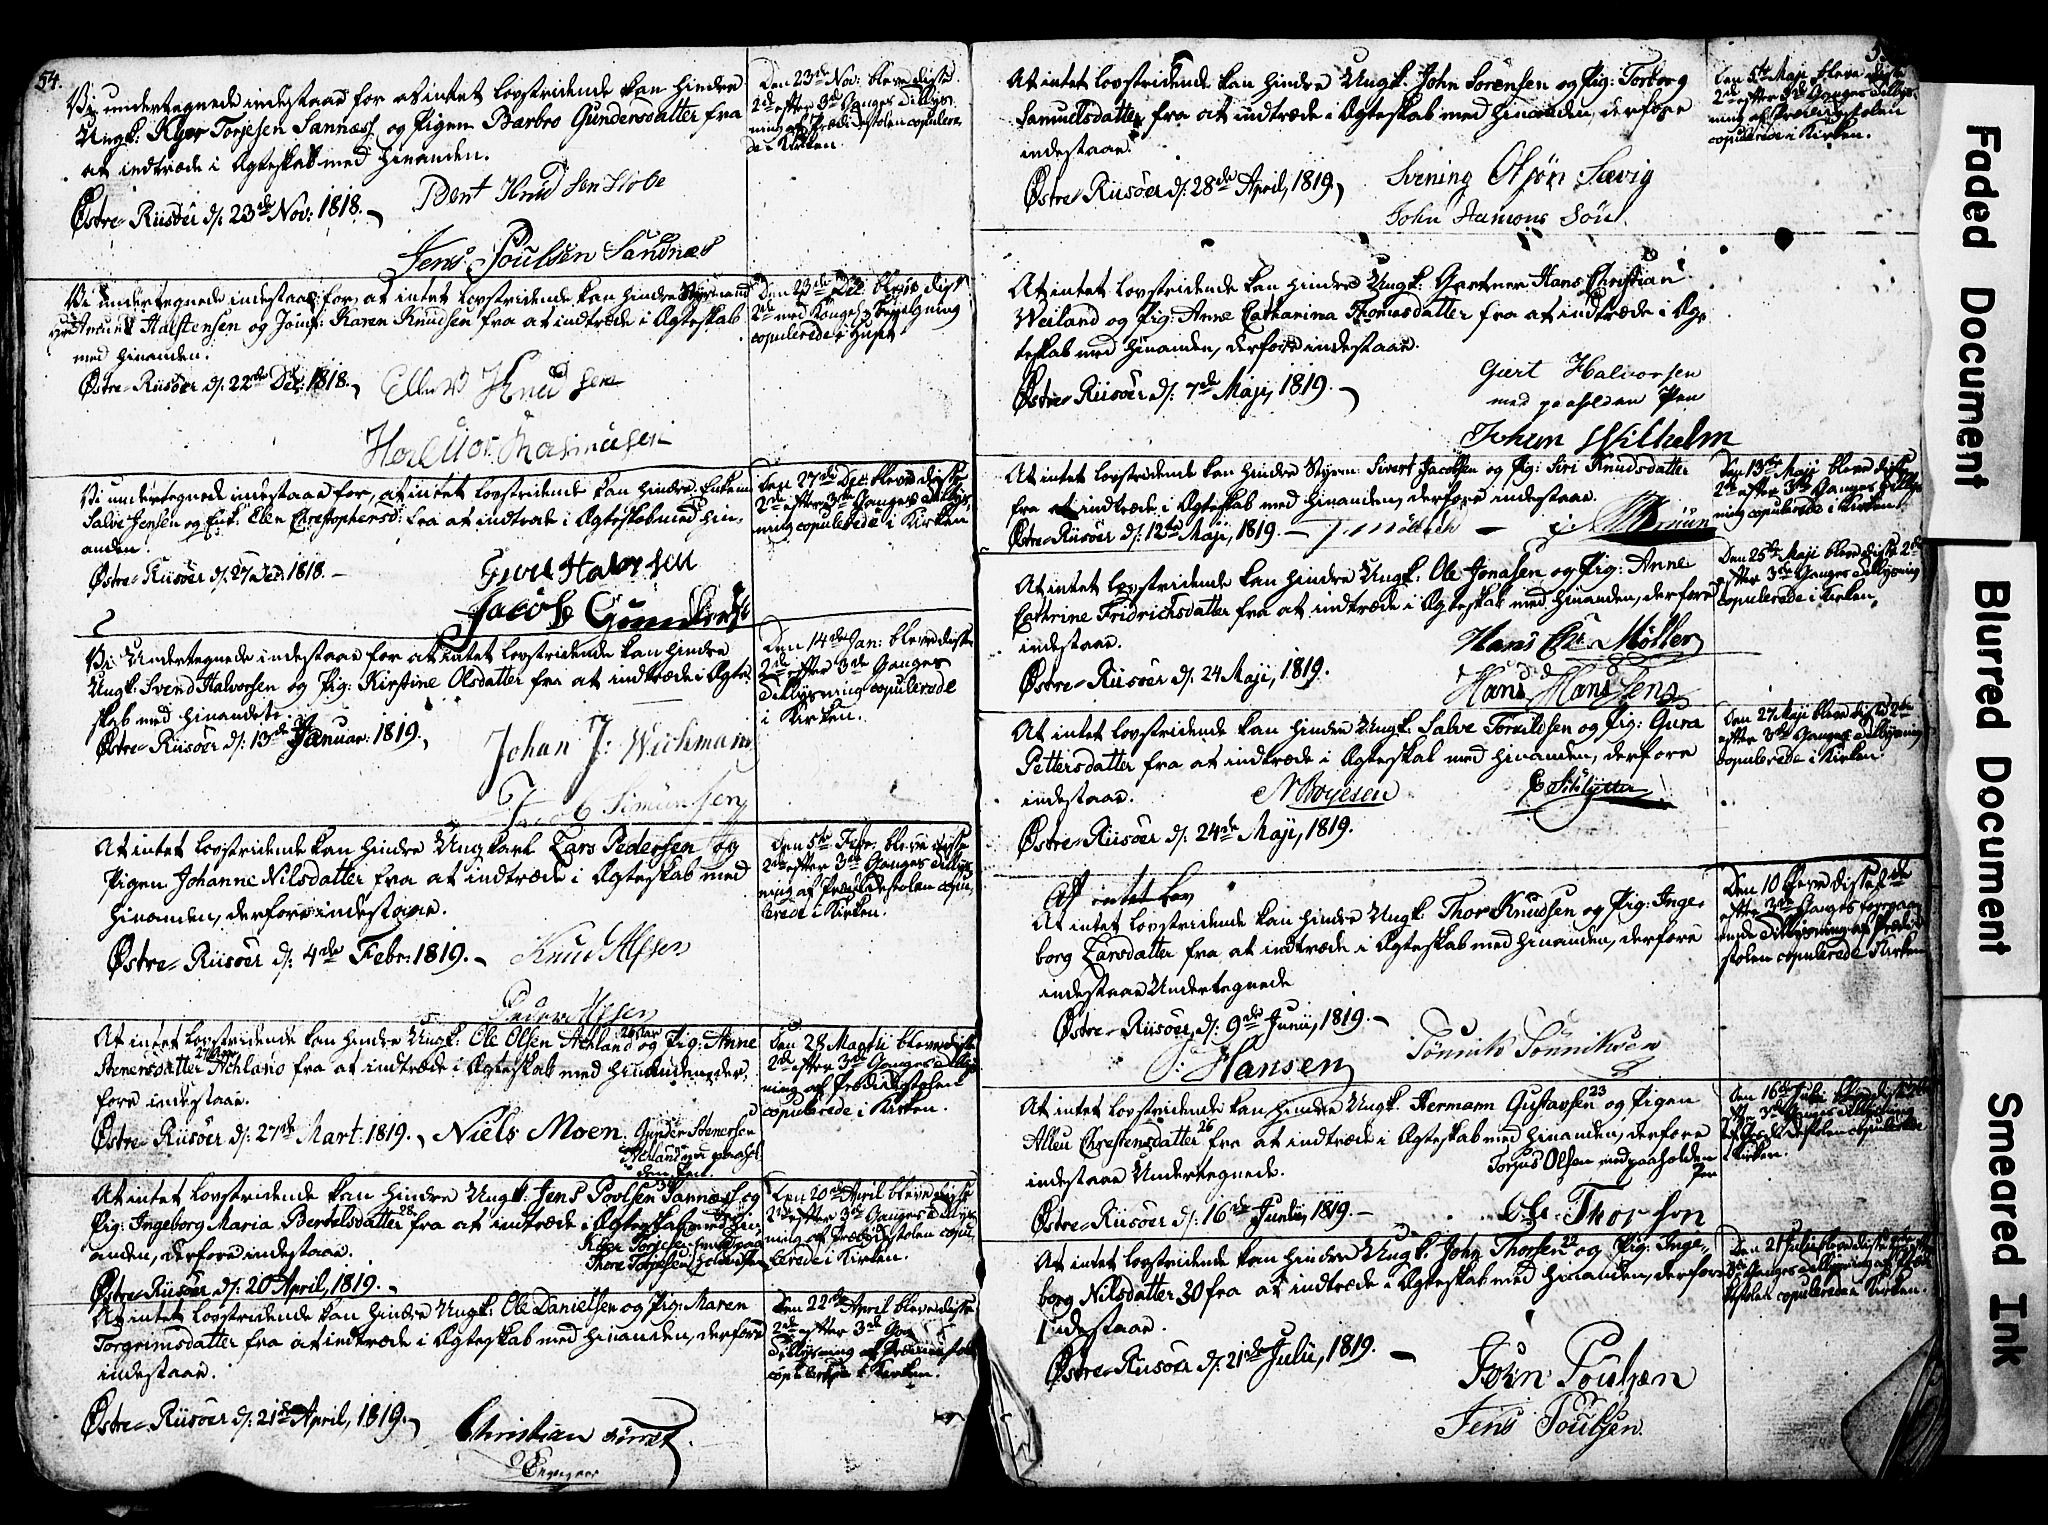 54.
Vi undertegnede indestaae for at intet lovstridende kan hindre
Ungk: Kjer Torjesen Sannæss og Pigen Barbro Gundersdatter fra
at indtræde i Ægteskab med hinanden.
Østre-Riisöer d: 23de Nov: 1818.
Bent Knudsen
Jens Poulsen Sandnæs
Den 23de Nov: bleve disse
2de efter 3de Ganges Tillys-
ning af Prædikestolen copulere-
de i Kirken.
Vi undertegnede indestaae for, at intet lovstridende kan hindre Styrmand
Halstensen og Jomf: Karen Knudsen fra at indtræde i Ægteskab
med hinanden.
Østre-Riisöer d: 22de Dec: 1818.
Knudsen
Halvor Rasmusen
Den 23de Dec bleve disse
2de med Konge Bevilgning
copulerede i Huset
Vi undertegnede indestaae for, at intet lovstridende kan hindre Enkem:
Salve Jensen og Enk: Elen Christophersd: fra at indtræde i Ægteskab med hin-
anden.
Østre-Riisöer d: 27 Dec. 1818.
Giert Halvorsen
Jacob Gunders
Den 27de Dec bleve disse
2de efter 3de Ganges Tillys-
ning copulerede i Kirken
Vi Undertegnede indestaae for at intet lovstridende kan hindre
Ungk: Svend Halvorsen og Pig: Kirstine Olsdatter fra at indtræde i Ægte-
skab med hinanden.
Østre-Riisöer d: 13de Januar: 1819.
Johan J: Wichmann
Jacob Simunsen
Den 14de Jan: bleve disse
2de efter 3de Ganges
Tillysning copulerede
i Kirken.
At intet lovstridende kan hindre Ungkarl Lars Pedersen og
Pigen Johanne Nilsdatter fra at indtræde i Ægteskab med
hinanden, derfore indestaae.
Østre-Riisöer d: 4de Febr: 1819.
Knud Alfsen
Peder Alfsen
Den 5te Febr. bleve disse
2de efter 3de Ganges Tillys-
ning af Prædikestolen copu-
lerede i Kirken.
At intet lovstridende kan hindre Ungk: Ole Olsen og Pig: Anne
Stenersdatter fra at indtræde i Ægteskab med hinanden, der-
fore indestaae.
Østre-Riisöer d: 27de Mart: 1819.
Niels Moen
Gunder Stenersen
med paahol-
den Pen.
Den 28 Martii bleve disse
2de efter 3de Ganges Tillys-
ning af Prædikestolen
copulerede i Kirken.
At intet lovstridende kan hindre Ungk: Jens Povlsen Sannæss og
Pig: Ingeborg Maria Bertelsdatter 28 fra at indtræde i Ægteskab med hin-
anden, derfore indestaae.
Kjer Torjesen med paa
Thore Torjesen
Østre-Riisöer d: 20 April, 1819.
Den 20de April bleve disse
2de efter 3de Ganges Tillys-
ning af Prædikestolen copu-
lerede i Kirken.
At intet lovstridende kan hindre Ungk: Ole Danielsen og Pig: Maren
Torgrimsdatter fra at indtræde i Ægteskab med hinanden, derfore
indestaae.
Østre-Riisöer d: 21de April, 1819.
Christian
Den 22de April bleve disse
2de efter 3de
Tillysning af Prædikestolen
copulerede i Kirken.
At intet lovstridende kan hindre Ungk: John Sörensen og Pig: Torborg
Samuelsdatter fra at indtræde i Ægteskab med hinanden, derfore
indestaae.
Østre-Riisöer d: 28de April, 1819.
Svening Olsön Sævig
John Aamons Sön
Den 5te Maji bleve disse
2de efter 3de Ganges Tillys-
ning af Prædikestolen
copulerede i Kirken.
At intet lovstridende kan hindre Ungk: Gartner Hans Christian
Weiland og Pig: Anne Catharina Thomasdatter fra at indtræde i Æg-
teskab med hinanden, derfore indestaae.
Østre-Riisöer d: 7de Maji, 1819.
Giert Halvorsen
med paaholden Pen
Johan Wilhelm
At intet lovstridende kan hindre Styrm: Sivert Jacobsen og Pig: Siri Knudsdatter
fra at indtræde i Ægteskab med hinanden, derfore indestaae.
Østre-Riisöer d: 12te Maji, 1819.
Den 13de Maji bleve disse
2de efter 3de Ganges Tillys-
ning copulerede i Kirken.
At intet lovstridende kan hindre Ungk: Ole Jonasen og Pig: Anne
Cathrine Fridrichsdatter fra at indtræde i Ægteskab med hinanden, derfore
indestaae.
Østre-Riisöer d: 24 Maji, 1819.
Hans Chr. Möller
Hans Hansens
Den 25de Maji bleve disse 2de
efter 3de Ganges Tillysning
copulerede i Kirken.
At intet lovstridende kan hindre Ungk: Salve Torkildsen og Pig: Gura
Pettersdatter fra at indtræde i Ægteskab med hinanden, derfore
indestaae.
N Boyesen
Schlytter
Østre-Riisöer d: 24de Maji, 1819.
Den 27 Maji bleve disse 2de
efter 3de Ganges Tillysning
copulerede i Kirken.
At intet lov
At intet lovstridende kan hindre Ungk: Thor Knudsen og Pig: Inge-
borg Larsdatter fra at indtræde i Ægteskab med hinanden, derfore
indestaae Undertegnede
Østre-Riisöer, d: 9de Junii, 1819.
Hansen
Tönnik Tönniksen
Den 10 bleve disse 2de
efter 3de Ganges foregaa-
ende Tillysning af Prædike-
stolen copulerede i Kirken
At intet lovstridende kan hindre Ungk. Hermann Gustavsen 23 og Pigen
Alleu Chrestensdatter 26 fra at indtræde i Ægteskab med hinanden, derfore
indestaae Undertegnede.
Torjus Olsen med paaholden
Pen
Østre-Riisöer d: 16de Junii, 1819.
Ole Thorson
Den 16de
efter 3de Ganges Tillysning
af Prædikestolen copulerede
i Kirken.
At intet lovstridende kan hindre Ungk. John Thorsen 22 og Pig: Inge-
borg Nilsdatter 30 fra at indtræde i Ægteskab med hinanden, derfore
indestaae.
Østre-Riisöer d: 21de Julii, 1819.
John Poulsen
Jens Poulsen
Den 21 Julii bleve disse 2de efter
3de Ganges Tillysning af Præd-
ikestolen copulerede i Kirken.
Faded Document
Blurred Document
Smeared Ink